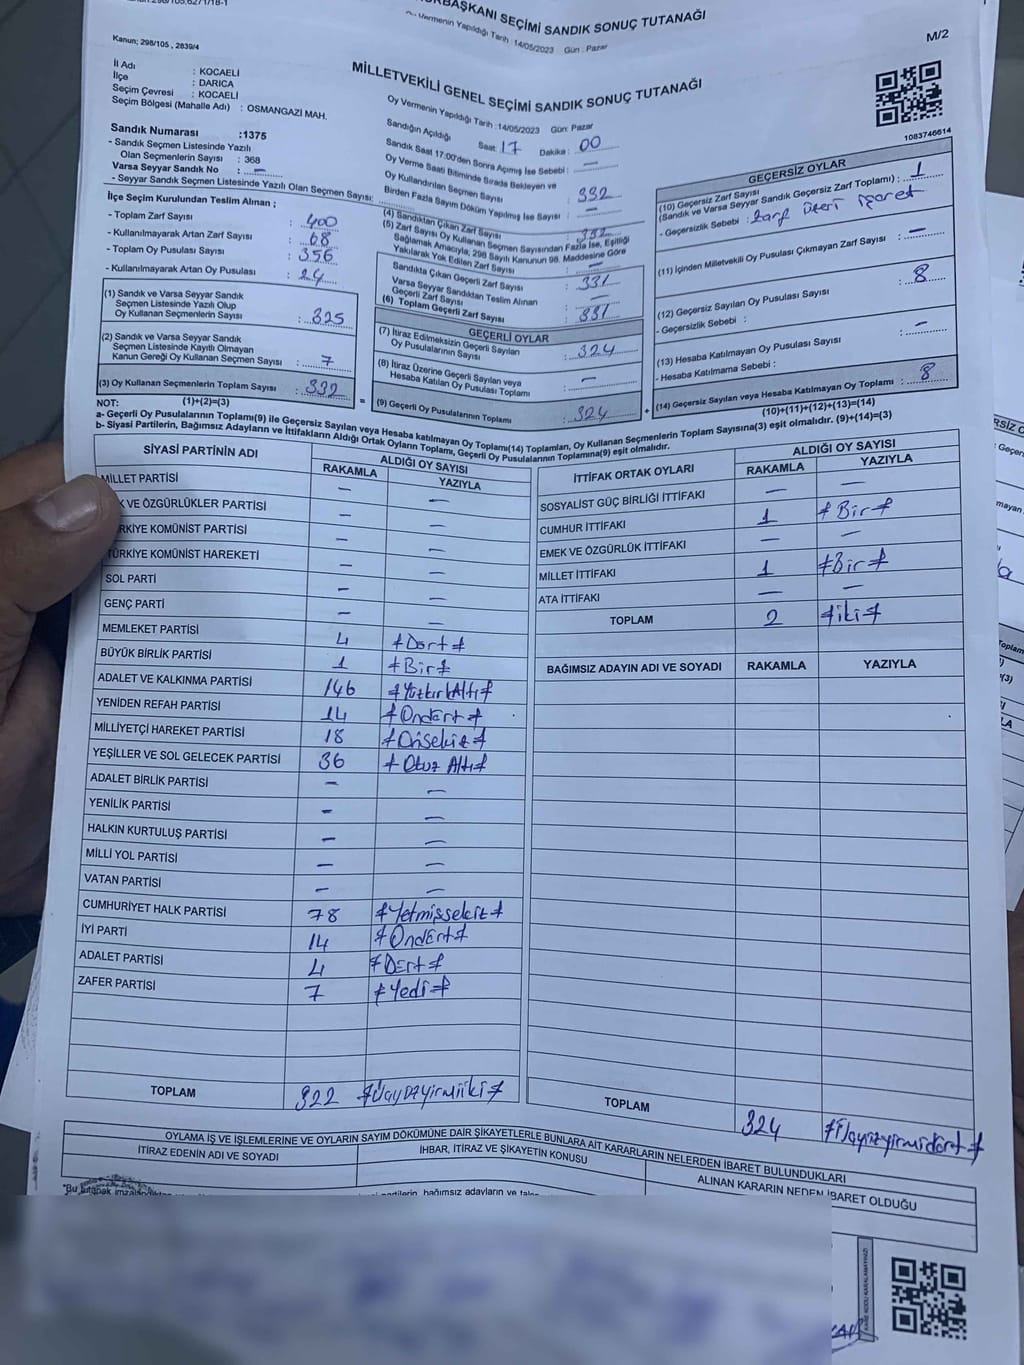 BAŞKANI SEÇİMİ SANDIK SONUÇ TUTANAĞI
Vermenin Yapıldığı Tarih : 14/05/2023 Gün : Pazar
M/2
Kanun; 298/105 , 2839/4
MİLLETVEKİLİ GENEL SEÇİMİ SANDIK SONUÇ TUTANAĞI
İl Adı : KOCAELİ
İlçe : DARICA
Seçim Çevresi : KOCAELİ
Seçim Bölgesi (Mahalle Adı) : OSMANGAZİ MAH.
Sandık Numarası :1375
- Sandık Seçmen Listesinde Yazılı
Olan Seçmenlerin Sayısı : 368
Varsa Seyyar Sandık No : —
- Seyyar Sandık Seçmen Listesinde Yazılı Olan Seçmen Sayısı:
İlçe Seçim Kurulundan Teslim Alınan ;
- Toplam Zarf Sayısı : 400
- Kullanılmayarak Artan Zarf Sayısı : 68
- Toplam Oy Pusulası Sayısı : 356
- Kullanılmayarak Artan Oy Pusulası : 24
(1) Sandık ve Varsa Seyyar Sandık
Seçmen Listesinde Yazılı Olup
Oy Kullanan Seçmenlerin Sayısı : 325
(2) Sandık ve Varsa Seyyar Sandık
Seçmen Listesinde Kayıtlı Olmayan
Kanun Gereği Oy Kullanan Seçmen Sayısı : 7
(3) Oy Kullanan Seçmenlerin Toplam Sayısı : 332
Oy Vermenin Yapıldığı Tarih :14/05/2023 Gün: Pazar
Sandığın Açıldığı Saat: 17 Dakika : 00
Sandık Saat 17:00'den Sonra Açılmış İse Sebebi : —
Oy Verme Saati Bitiminde Sırada Bekleyen ve
Oy Kullandırılan Seçmen Sayısı : 332
Birden Fazla Sayım Döküm Yapılmış İse Sayısı : —
(4) Sandıktan Çıkan Zarf Sayısı : 332
(5) Zarf Sayısı Oy Kullanan Seçmen Sayısından Fazla İse, Eşitliği
Sağlamak Amacıyla; 298 Sayılı Kanunun 98. Maddesine Göre
Yakılarak Yok Edilen Zarf Sayısı : —
Sandıkta Çıkan Geçerli Zarf Sayısı : 331
Varsa Seyyar Sandıktan Teslim Alınan
Geçerli Zarf Sayısı : —
(6) Toplam Geçerli Zarf Sayısı : 331
GEÇERLİ OYLAR
(7) İtiraz Edilmeksizin Geçerli Sayılan
Oy Pusulalarının Sayısı : 324
(8) İtiraz Üzerine Geçerli Sayılan veya
Hesaba Katılan Oy Pusulası Toplamı : —
= (9) Geçerli Oy Pusulalarının Toplamı : 324
1083746614
GEÇERSİZ OYLAR
(10) Geçersiz Zarf Sayısı
(Sandık ve Varsa Seyyar Sandık Geçersiz Zarf Toplamı) : 1
- Geçersizlik Sebebi : zarf üzeri işaret
(11) İçinden Milletvekili Oy Pusulası Çıkmayan Zarf Sayısı : —
(12) Geçersiz Sayılan Oy Pusulası Sayısı : 8
- Geçersizlik Sebebi :
(13) Hesaba Katılmayan Oy Pusulası Sayısı : —
- Hesaba Katılmama Sebebi :
+ (14) Geçersiz Sayılan veya Hesaba Katılmayan Oy Toplamı : 8
NOT: (1)+(2)=(3)
(10)+(11)+(12)+(13)=(14)
a- Geçerli Oy Pusulalarının Toplamı(9) ile Geçersiz Sayılan veya Hesaba katılmayan Oy Toplamı(14) Toplamları, Oy Kullanan Seçmenlerin Toplam Sayısına(3) eşit olmalıdır. (9)+(14)=(3)
b- Siyasi Partilerin, Bağımsız Adayların ve İttifakların Aldığı Ortak Oyların Toplamı, Geçerli Oy Pusulalarının Toplamına(9) eşit olmalıdır.
SİYASİ PARTİNİN ADI ALDIĞI OY SAYISI
RAKAMLA YAZIYLA
MİLLET PARTİSİ — —
K VE ÖZGÜRLÜKLER PARTİSİ — —
RKİYE KOMÜNİST PARTİSİ — —
TÜRKİYE KOMÜNİST HAREKETİ — —
SOL PARTİ — —
GENÇ PARTİ — —
MEMLEKET PARTİSİ 4 #Dört#
BÜYÜK BİRLİK PARTİSİ 1 #Bir#
ADALET VE KALKINMA PARTİSİ 146 #YüzkırkAltı#
YENİDEN REFAH PARTİSİ 14 #Ondört#
MİLLİYETÇİ HAREKET PARTİSİ 18 #Onsekiz#
YEŞİLLER VE SOL GELECEK PARTİSİ 36 #Otuz Altı#
ADALET BİRLİK PARTİSİ — —
YENİLİK PARTİSİ — —
HALKIN KURTULUŞ PARTİSİ — —
MİLLİ YOL PARTİSİ — —
VATAN PARTİSİ — —
CUMHURİYET HALK PARTİSİ 78 #Yetmişsekiz#
İYİ PARTİ 14 #Ondört#
ADALET PARTİSİ 4 #Dört#
ZAFER PARTİSİ 7 #Yedi#
TOPLAM 322 #Üçyüzyirmiiki#
İTTİFAK ORTAK OYLARI ALDIĞI OY SAYISI
RAKAMLA YAZIYLA
SOSYALİST GÜÇ BİRLİĞİ İTTİFAKI — —
CUMHUR İTTİFAKI 1 #Bir#
EMEK VE ÖZGÜRLÜK İTTİFAKI — —
MİLLET İTTİFAKI 1 #Bir#
ATA İTTİFAKI — —
TOPLAM 2 #iki#
BAĞIMSIZ ADAYIN ADI VE SOYADI RAKAMLA YAZIYLA
TOPLAM 324 #Üçyüzyirmidört#
OYLAMA İŞ VE İŞLEMLERİNE VE OYLARIN SAYIM DÖKÜMÜNE DAİR ŞİKAYETLERLE BUNLARA AİT KARARLARIN NELERDEN İBARET BULUNDUKLARI
İTİRAZ EDENİN ADI VE SOYADI
İHBAR, İTİRAZ VE ŞİKAYETİN KONUSU
ALINAN KARARIN NEDEN İBARET OLDUĞU